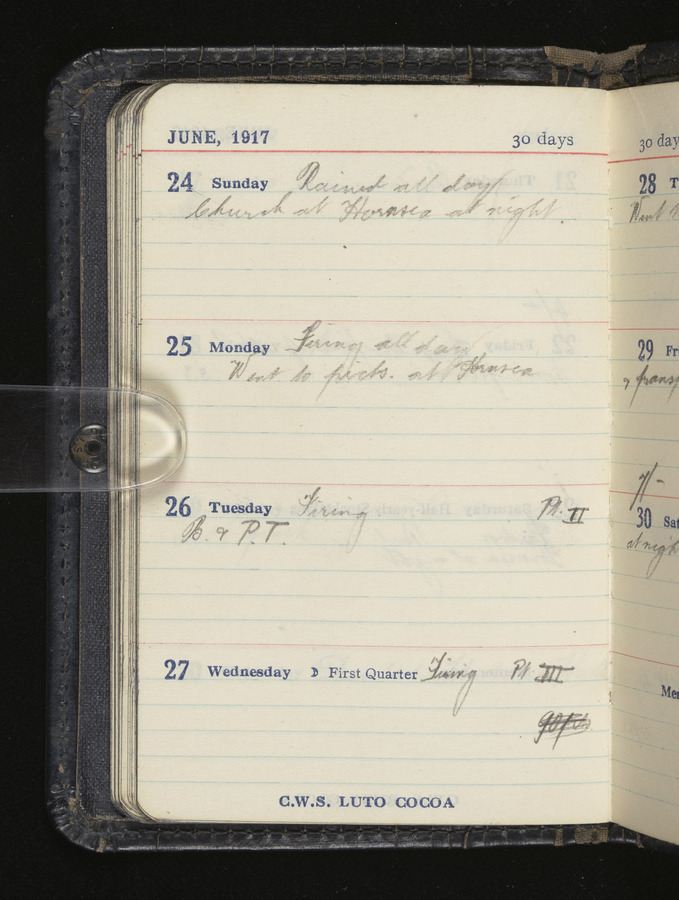 JUNE, 1917 30 days
24 Sunday Rained all day
Church at Hornsea at night.
25 Monday Firing all day
Went to picts. at Hornsea
26 Tuesday Firing Pt. II
B. & P.T.
27 Wednesday First Quarter Firing Pt III
C.W.S. LUTO COCOA
30 day
28 T
Went
29 Fr
&
30 Sat
at nigh
Me